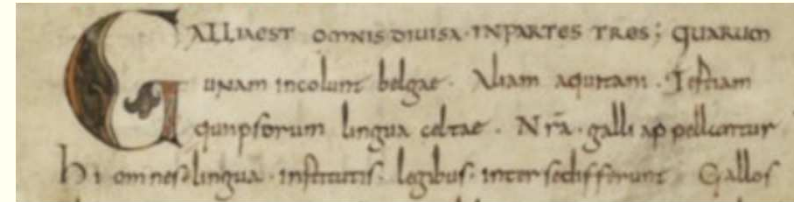 GALLIAEST OMNIS DIUISA·INPARTES TRES; QUARUM
unam incolunt belgae· Aliam aquitani· Tertiam
qui ipsorum lingua celtae· Nr̄a·galli appellantur
hi omnes lingua·institutis·legibus·inter sedifferunt Gallos